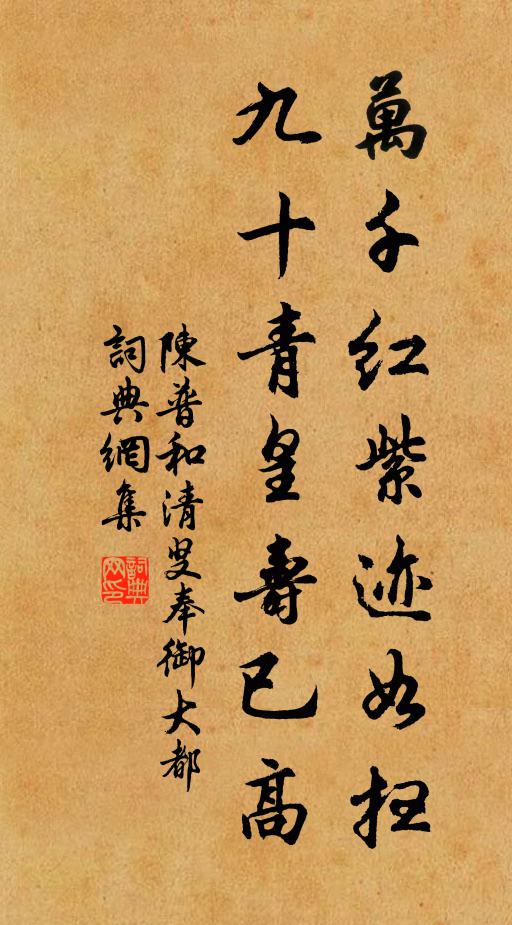 萬千红紫迹如扫
九十青皇壽已高
陳普和清叟奉御大都
詞典網集
詞典網印